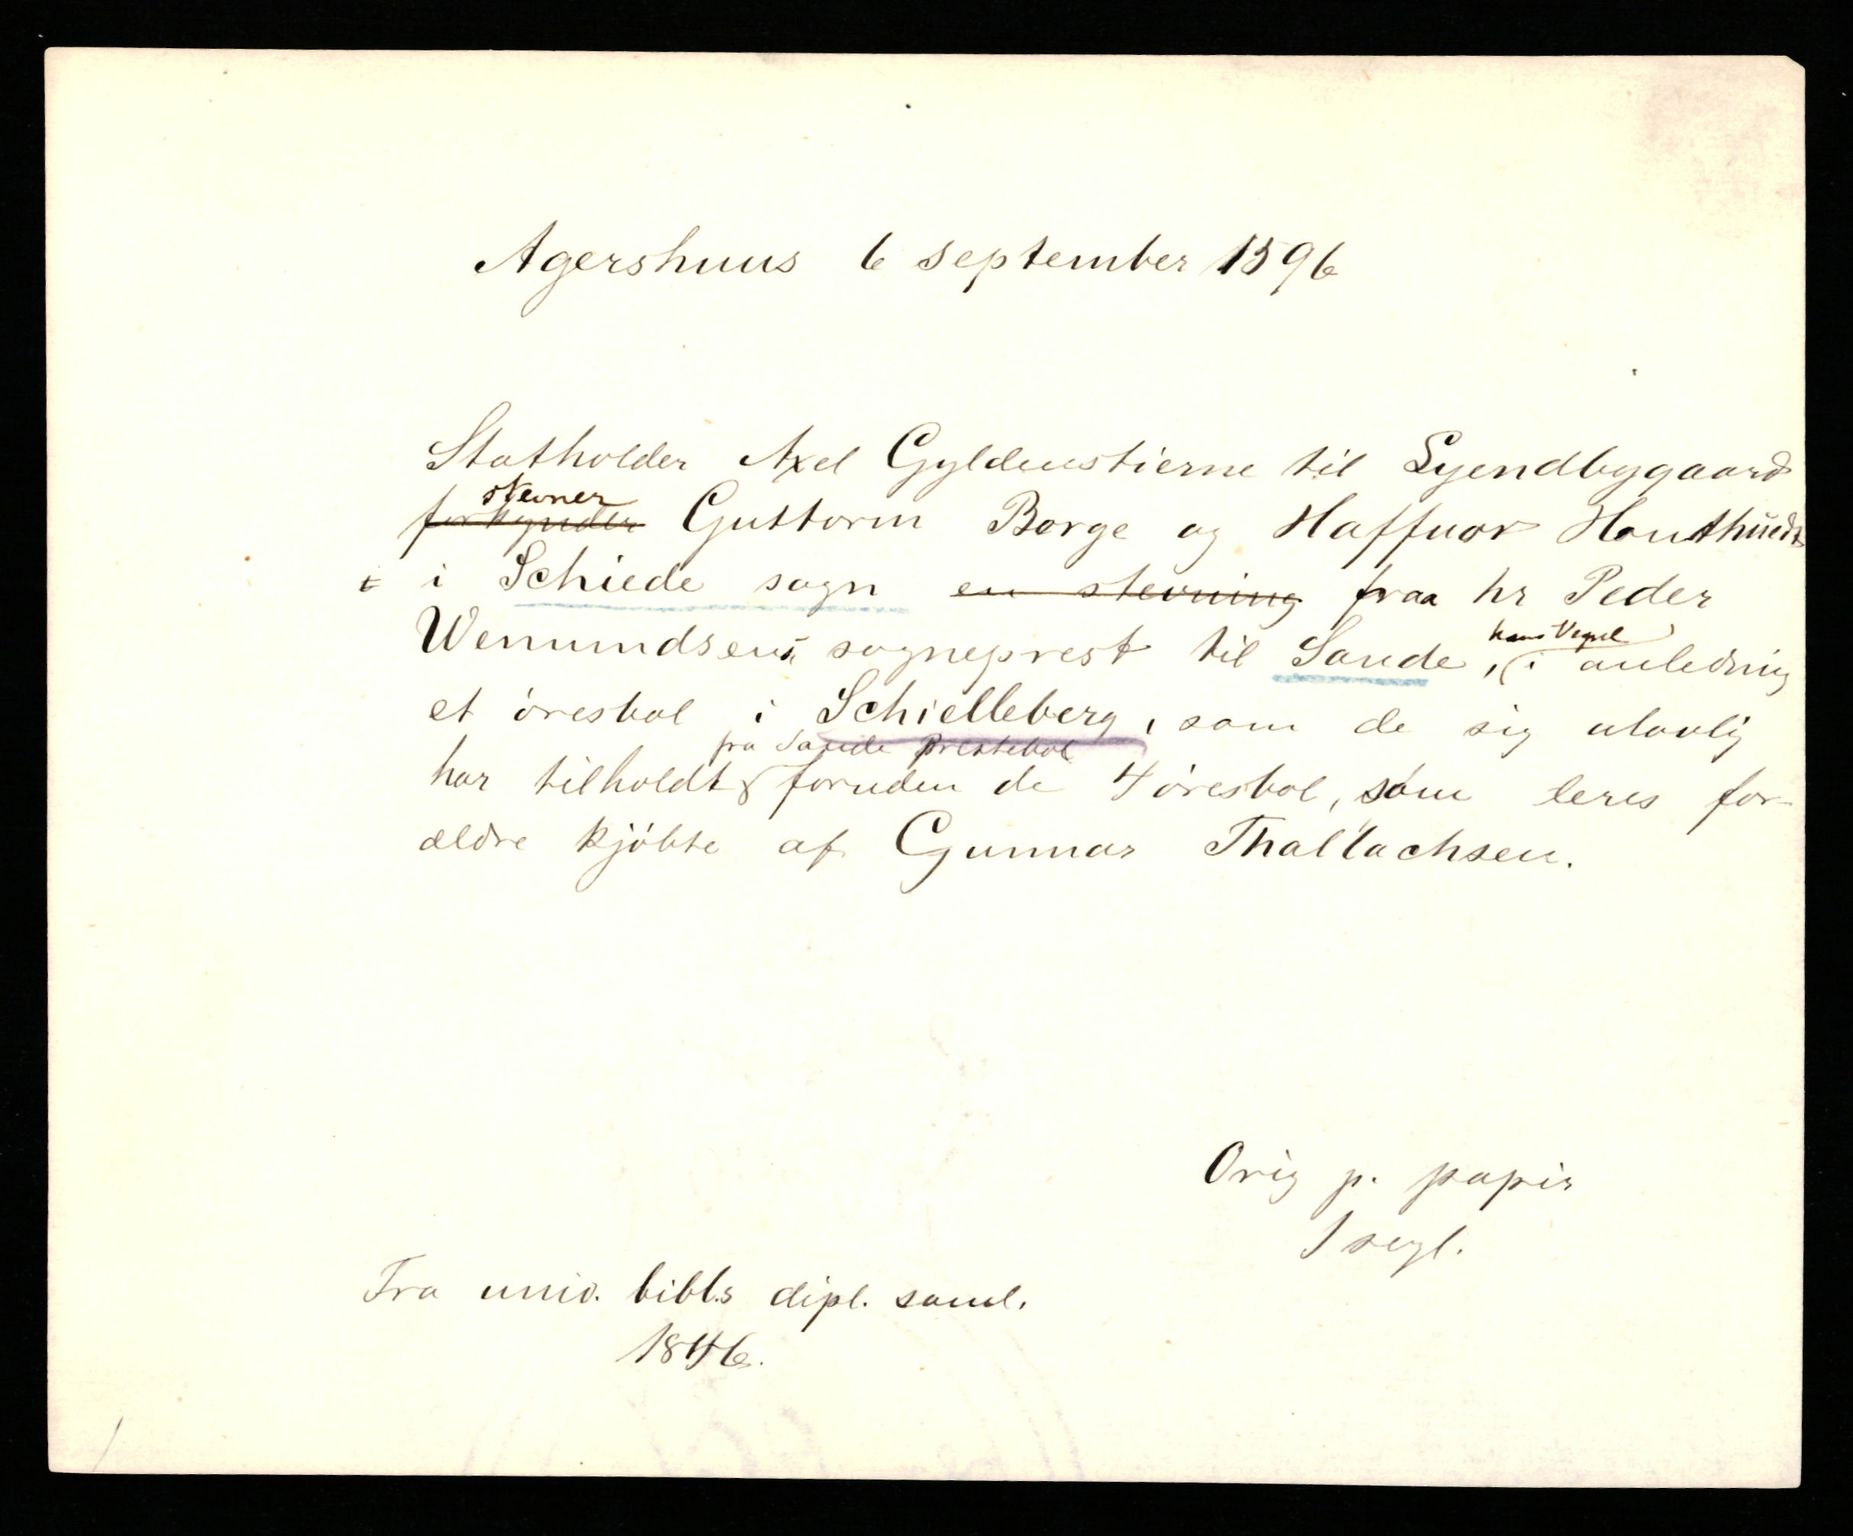 Agershuus 6 september 1596
Statholder Axel Gyldenstierne til Lyendbygaard
stevner
forkynder Guttorm Borge og Haffuor Houthued
i Schiede sogn en stevning fraa hr Peder
Wemundsens sogneprest til Sande, i anledning
et øresbol i Schielleberg, som de sig ulovlig
fra Sande Prestebol
har tilholdt foruden de 4 øresbol, som leres for-
ældre kjøbte af Gunnar Thallachsen.
Orig p. papir
1 segl.
Fra univ. bibl.s dipl. saml.
1846.